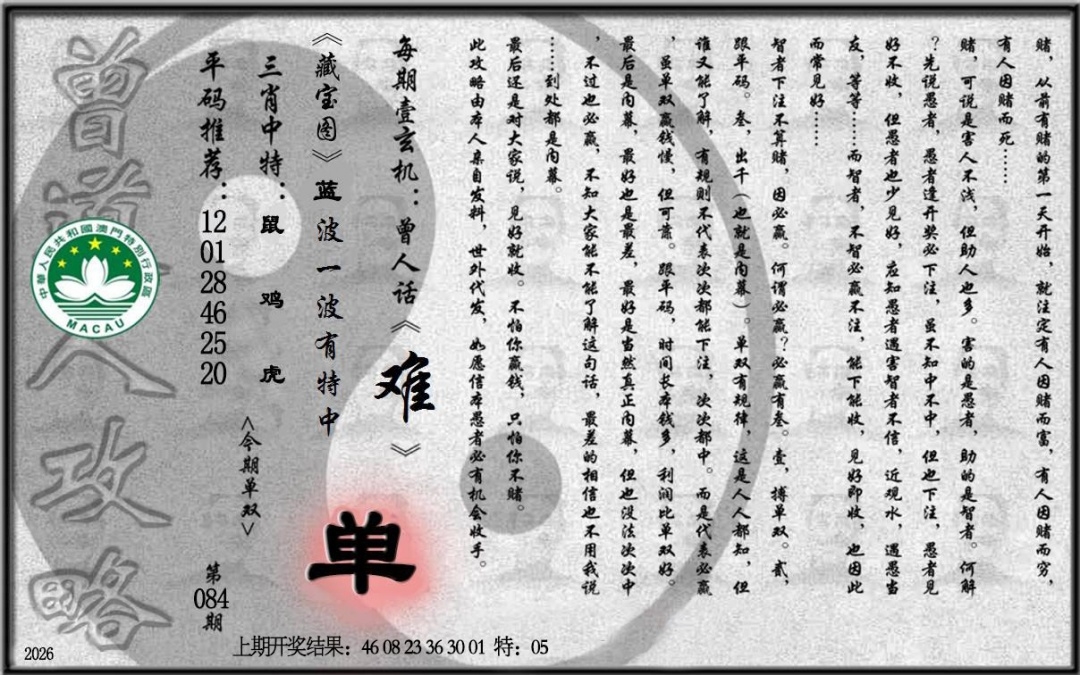 赌，从前有赌的第一天开始，就注定有人因赌而富，有人因赌而穷，
有人因赌而死……
赌，可说是害人不浅，但助人也多。害的是愚者，助的是智者。何解
？先说愚者，愚者逢开奖必下注，虽不知中不中，但也下注，愚者见
好不收，但愚者也少见好，应知愚者遇害智者不信，近观水，遇愚当
友，等等……而智者，不智必赢不注，能下能收，见好即收，也因此
而常见好……
智者下注不算赌，因必赢。何谓必赢？必赢有叁。壹，搏单双。贰，
跟平码。叁，出千（也就是内幕）。单双有规律，这是人人都知，但
谁又能了解，有规则不代表次次都能下注，次次都中。而是代表必赢
，虽单双赢钱慢，但可靠。跟平码，时间长本钱多，利润比单双好。
最后是内幕，最好也是最差，最好是当然真正内幕，但也没法次次中
，不过也必赢，不知大家能不能了解这句话，最差的相信也不用我说
……到处都是内幕。
最后还是对大家说，见好就收。不怕你赢钱，只怕你不赌。
此攻略由本人亲自发料，世外代发，如愿信本愚者必有机会收手。
每期壹玄机：曾人话《难》
《藏宝图》蓝波一波有特中
单
三肖中特：鼠 鸡 虎
<今期单双>
平码推荐：12 01 28 46 25 20
第084期
曾道人攻略
中華人民共和國澳門特別行政區
MACAU
上期开奖结果：46 08 23 36 30 01 特：05
2026